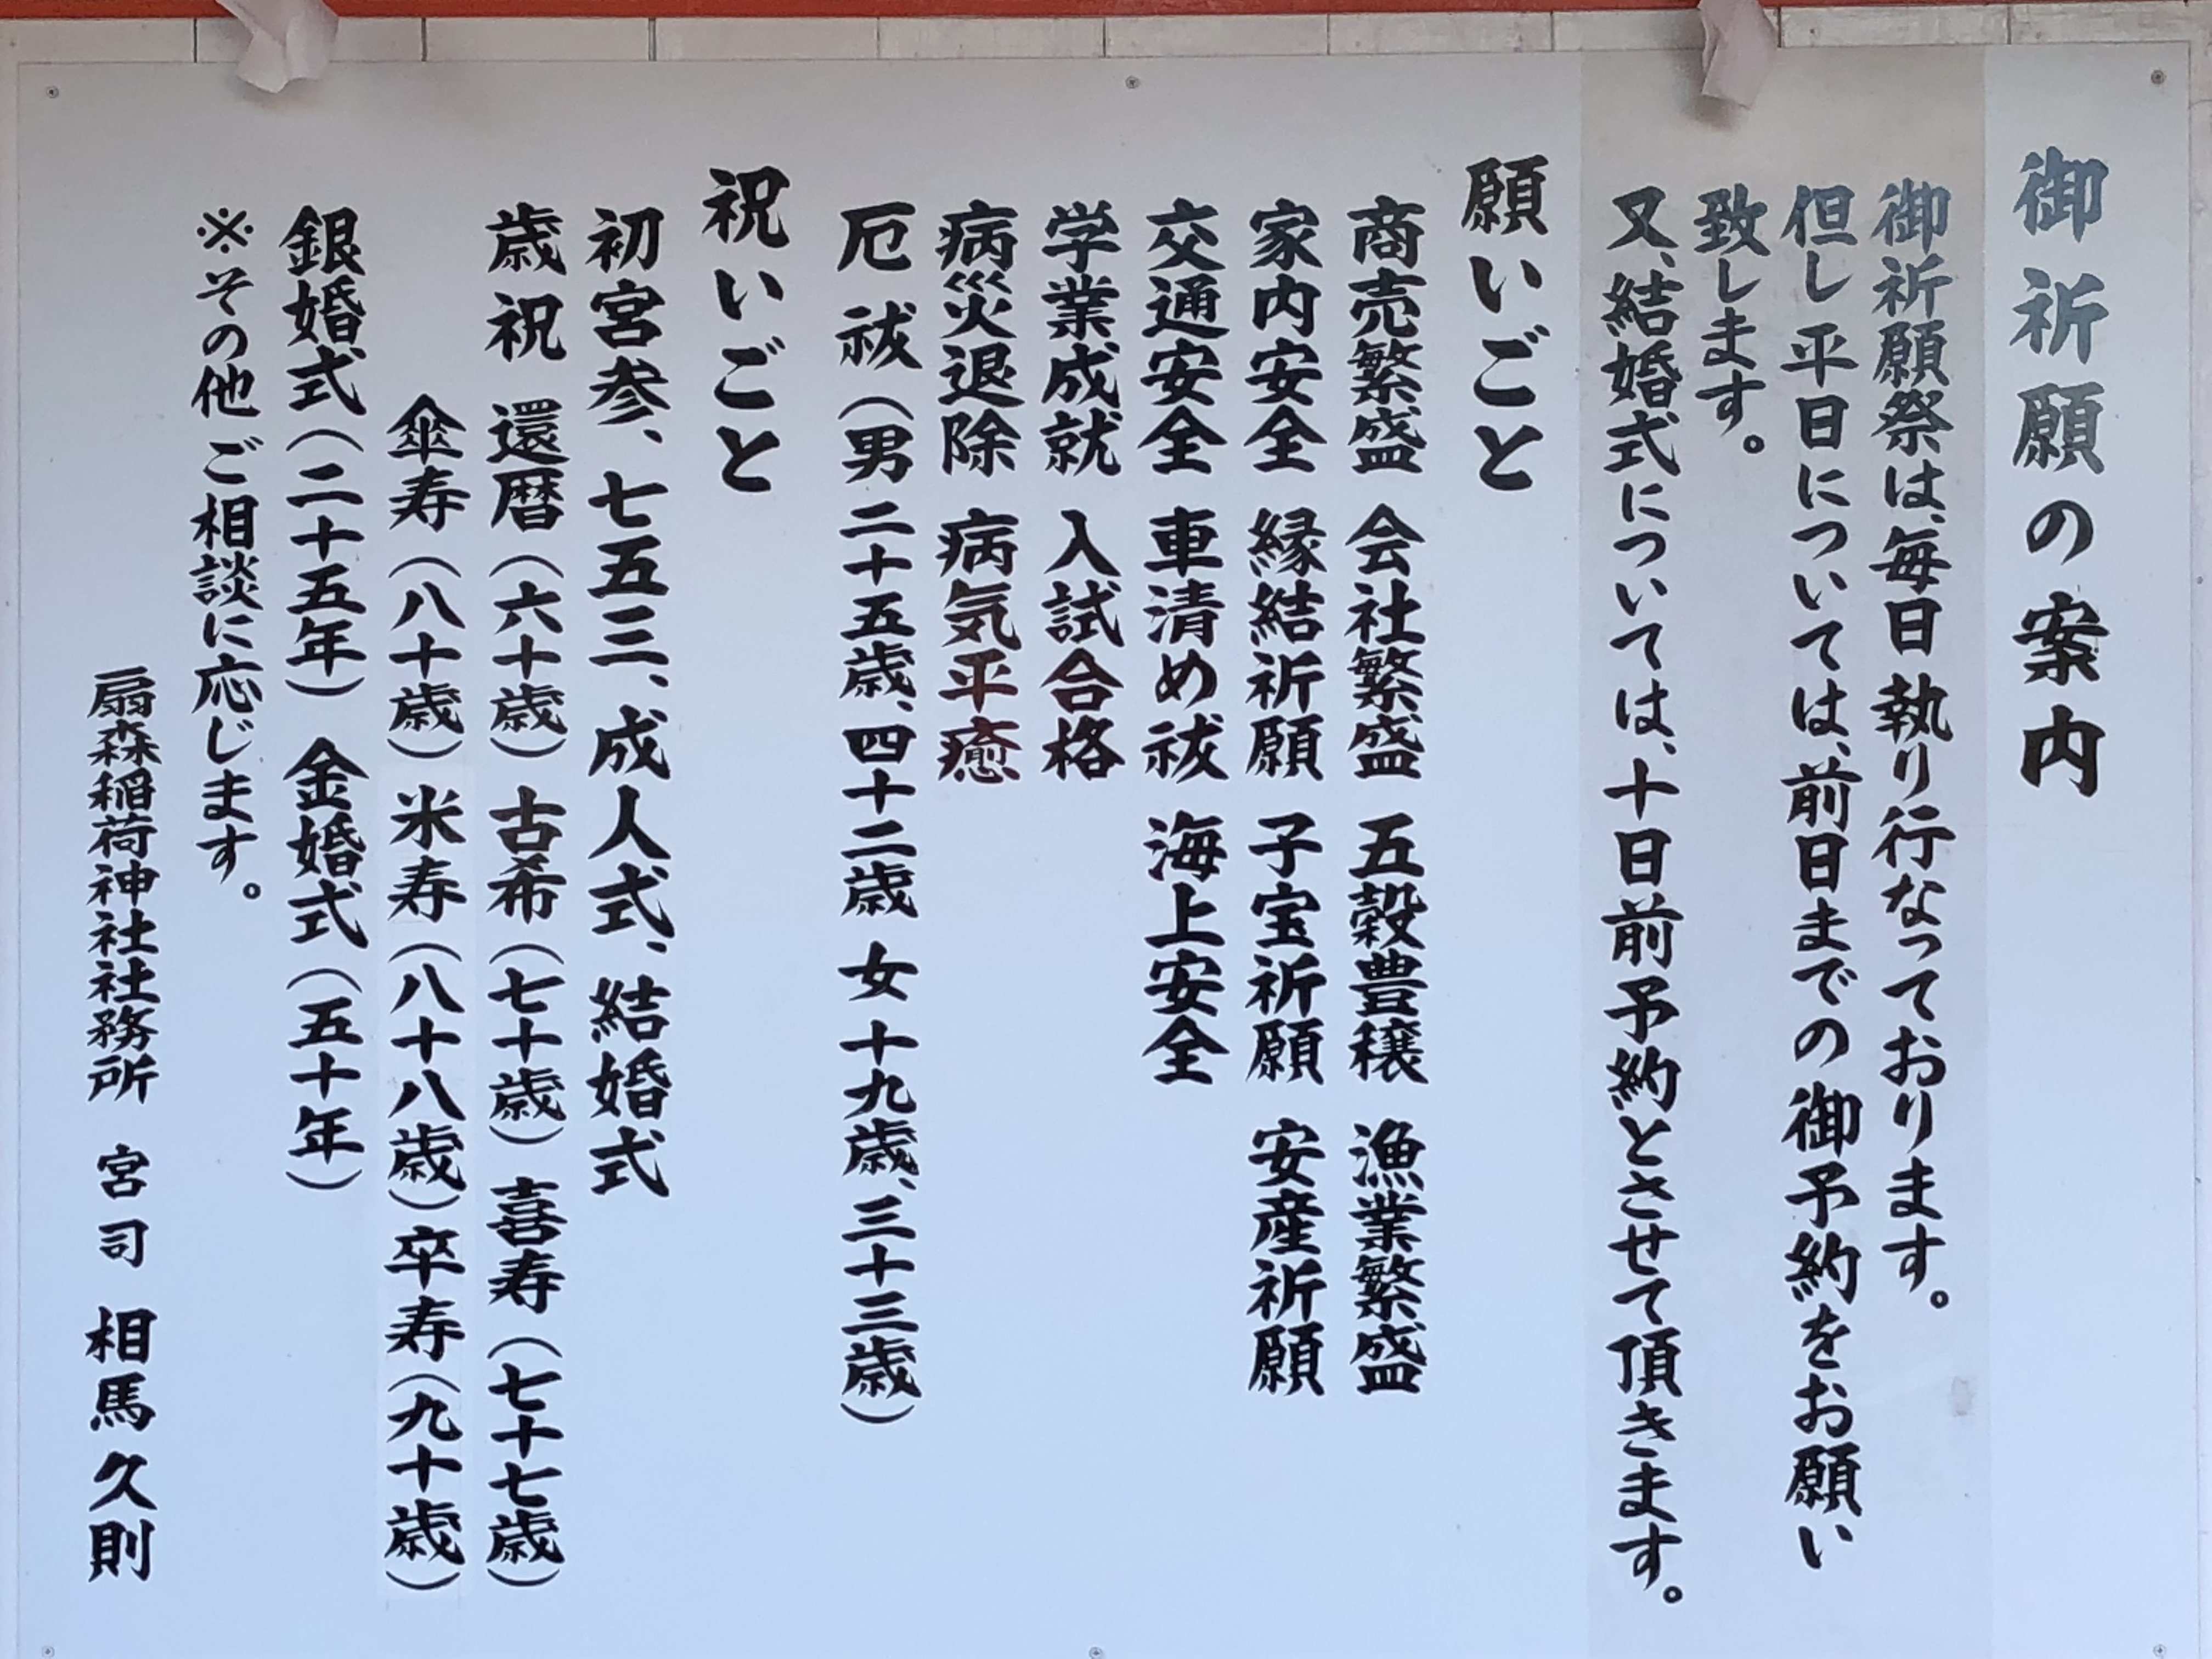 御祈願の案内
御祈願祭は、毎日執り行なっております。
但し平日については、前日までの御予約をお願い
致します。
又、結婚式については、十日前予約とさせて頂きます。
願いごと
商売繁盛 会社繁盛 五穀豊穣 漁業繁盛
家内安全 縁結祈願 子宝祈願 安産祈願
交通安全 車清め祓 海上安全
学業成就 入試合格
病災退除 病気平癒
厄祓（男二十五歳、四十二歳 女十九歳、三十三歳）
祝いごと
初宮参、七五三、成人式、結婚式
歳祝 還暦（六十歳）古希（七十歳）喜寿（七十七歳）
傘寿（八十歳）米寿（八十八歳）卒寿（九十歳）
銀婚式（二十五年） 金婚式（五十年）
※その他ご相談に応じます。
扇森稲荷神社社務所 宮司 相馬久則